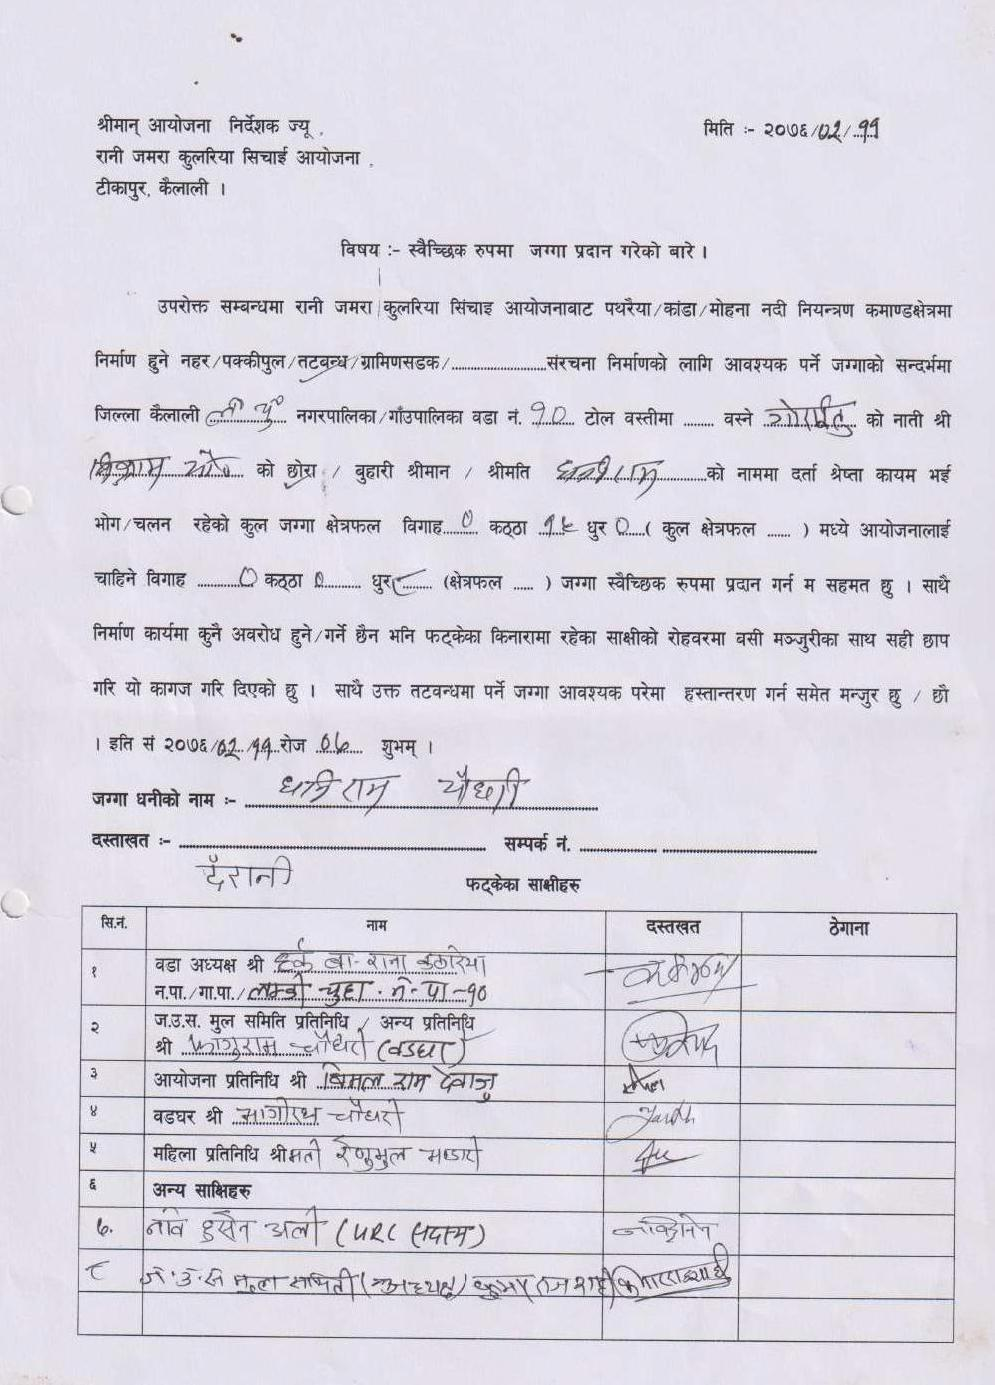 श्रीमान् आयोजना निर्देशक ज्यू ,
मिति :- २०७६/02/११
रानी जमरा कुलरिया सिचाई आयोजना ,
टीकापुर, कैलाली ।
विषय :- स्वैच्छिक रुपमा जग्गा प्रदान गरेको बारे ।
उपरोक्त सम्बन्धमा रानी जमरा कुलरिया सिंचाइ आयोजनाबाट पथरैया/कांडा/मोहना नदी नियन्त्रण कमाण्डक्षेत्रमा
निर्माण हुने नहर/पक्कीपुल/तटबन्ध/ग्रामिणसडक/..........................संरचना निर्माणको लागि आवश्यक पर्ने जग्गाको सन्दर्भमा
जिल्ला कैलाली ल चु नगरपालिका/गाँउपालिका वडा नं. १० टोल वस्तीमा ........ वस्ने को नाती श्री
को छोरा / बुहारी श्रीमान / श्रीमति को नाममा दर्ता श्रेष्ता कायम भई
भोग/चलन रहेको कुल जग्गा क्षेत्रफल विगाह 0 कठ्ठा धुर 0 ( कुल क्षेत्रफल ...... ) मध्ये आयोजनालाई
चाहिने विगाह 0 कठ्ठा 0 धुर ८ (क्षेत्रफल ...... ) जग्गा स्वैच्छिक रुपमा प्रदान गर्न म सहमत छु । साथै
निर्माण कार्यमा कुनै अवरोध हुने/गर्ने छैन भनि फट्केका किनारामा रहेका साक्षीको रोहवरमा बसी मञ्जुरीका साथ सही छाप
गरि यो कागज गरि दिएको छु । साथै उक्त तटवन्धमा पर्ने जग्गा आवश्यक परेमा हस्तान्तरण गर्न समेत मन्जुर छु / छौ
। इति सं २०७६/02/११ रोज 0६ शुभम् ।
जग्गा धनीको नाम :- धनिराम चौधरी
दस्ताखत :- सम्पर्क नं.
फट्केका साक्षीहरु
सि.नं. नाम दस्तखत ठेगाना
१ वडा अध्यक्ष श्री हर्क ब. राना कठरिया
न.पा./गा.पा./लम्की चुहा न. पा -१०
२ ज.उ.स. मुल समिति प्रतिनिधि / अन्य प्रतिनिधि
श्री फागुराम चौधरी (वडघर)
३ आयोजना प्रतिनिधि श्री बिमल राम देवाजु
४ वडघर श्री भागीरथ चौधरी
५ महिला प्रतिनिधि श्रीमती भण्डारी
६ अन्य साक्षिहरु
७. हुसैन अली (URC सदस्य)
८ ज.उ.स मुल समिती (अध्यक्ष)